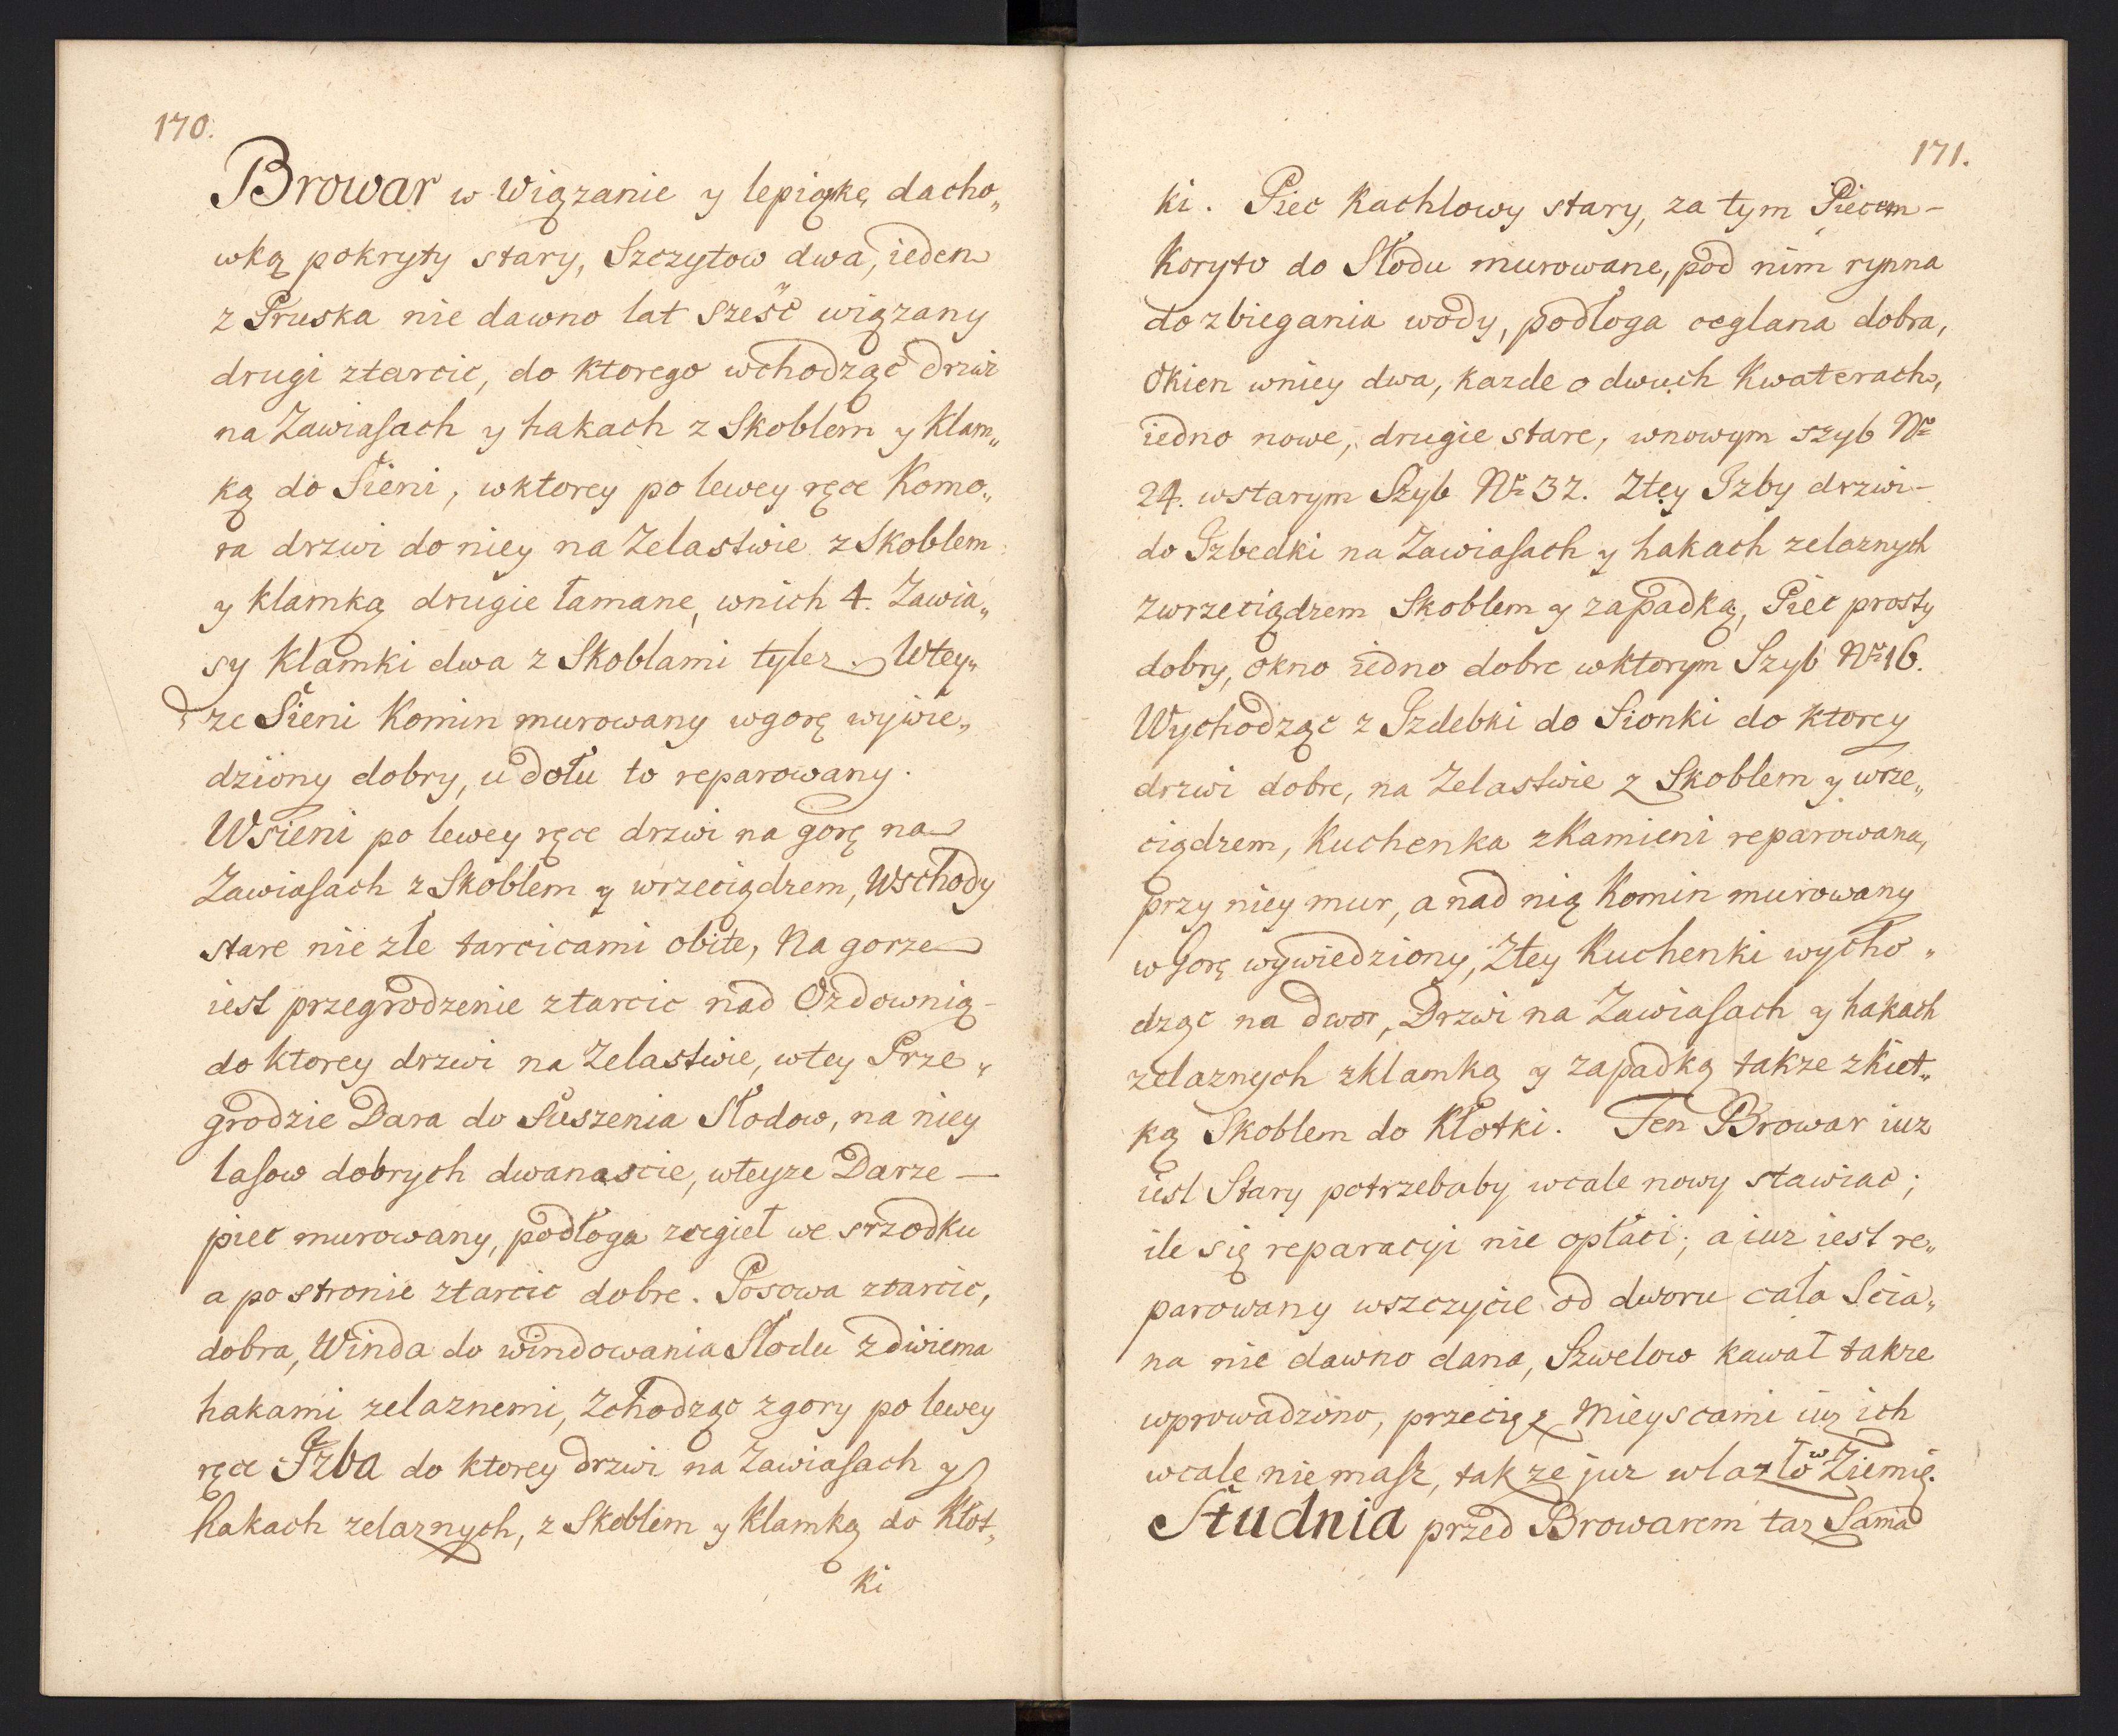 170.
Browar w Wiązanie y lepiąkę dacho„
wką pokryty stary, Szczytow dwa, ieden
z Pruska nie dawno lat sześć wiązany
drugi ztarcic, do ktorego wchodząc drzwi
na Zawiasach y hakach z Skoblem y Klam„
ką do Sieni, wktorey po lewey ręce Komo„
ra drzwi do niey na Zelastwie z Skoblem
y klamką drugie łamane, wnich 4. Zawia„
sy Klamki dwa z Skoblami tylez. Wtey„
ze Sieni Komin murowany wgorę wywie„
dziony dobry, u dołu to reparowany.
Wsieni po lewey ręce drzwi na gorę na
Zawiasach z Skoblem y wrzeciądzem, Wschody
stare nie złe tarcicami obite, Na gorze
iest przegrodzenie ztarcic nad Ozdownią-
do ktorey drzwi na Zelastwie, wtey Prze„
grodzie Dara do Suszenia Słodow, na niey
lasow dobrych dwanascie, wteyze Darze —
piec murowany, podłoga zcegieł we srzodku
a po stronie ztarcic dobre. Posowa ztarcic,
dobra, Winda do windowania Słodu z dwiema
hakami zelaznemi, Zchodząc zgory po lewey
ręce Izba do ktorey drzwi na Zawiasach y
hakach zelaznych, z Skoblem y Klamką do Kłot„
ki
171.
ki. Piec Kachlowy stary, za tym Piecem-
Koryto do Słodu murowane, pod nim rynna
do zbiegania wody, podłoga ceglana dobra,
Okien wniey dwa, kazde o dwuch Kwaterach,
iedno nowe, drugie stare, wnowym szyb No
24. wstarym Szyb No 32. Ztey Izby drzwi-
do Izbedki na Zawiasach y hakach zelaznych
zwrzeciądzem Skoblem y zapadką, Piec prosty
dobry, okno iedno dobre wktorym Szyb No 16.
Wychodząc z Izdebki do Sionki do ktorey
drzwi dobre, na Zelastwie z Skoblem y wrze„
ciądzem, Kuchenka zKamieni reparowana,
przy niey mur, a nad nią Komin murowany
w Gorę wywiedziony, Ztey Kuchenki wycho„
dząc na dwor, Drzwi na Zawiasach y hakach
zelaznych zklamką y zapadką takze zkiet„
ką Skoblem do Kłotki. Ten Browar iuz
iest Stary potrzebaby wcale nowy stawiac;
ile się reparacyi nie opłaci; a iuz iest re„
parowany wszczycie od dworu cała Scia„
na nie dawno dana, Szwelow kawał takze
wprowadzono, przecię z Mieyscami iuz ich
wcale nie masz, tak ze juz wlazło w Ziemię.
Studnia przed Browarem taz Sama